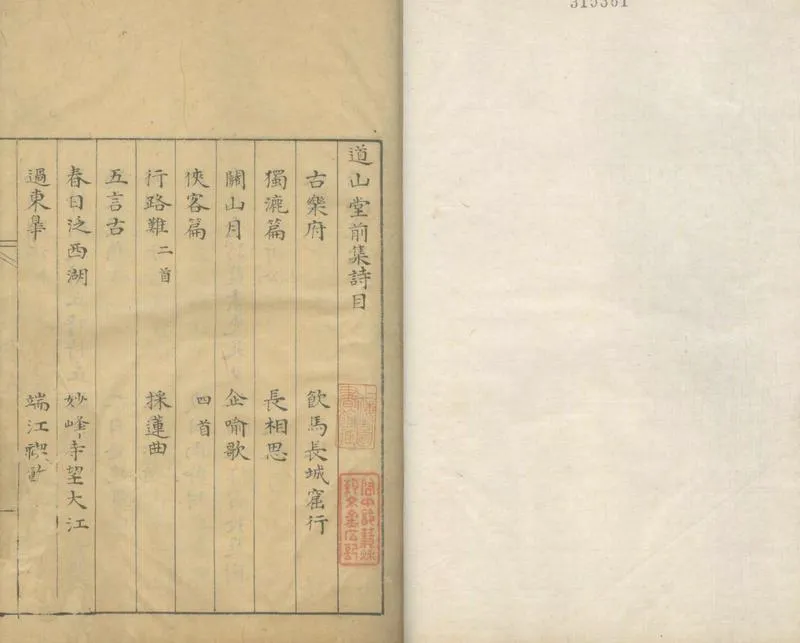 道山堂前集詩目
古樂府 飲馬長城窟行
獨漉篇 長相思
關山月 企喻歌
俠客篇 四首
行路難二首 採蓮曲
五言古
春日泛西湖 妙峰寺望大江
過東皋 端江禊